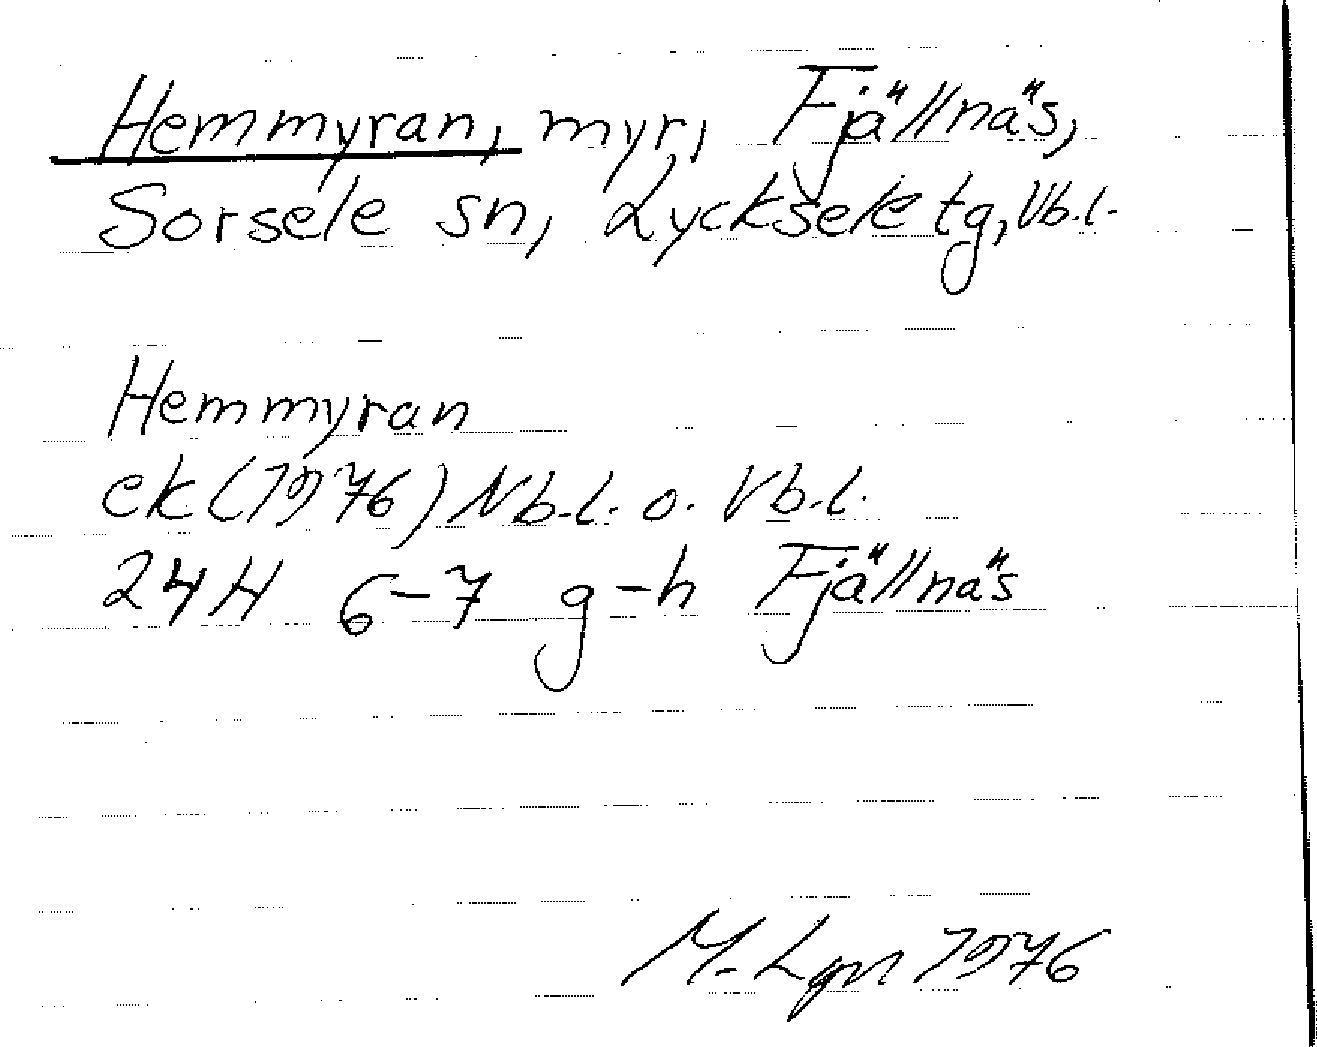 Hemmyran, myr, Fjällnäs,
Sorsele sn, Lycksele tg, Vb.l.
Hemmyran
ek (1976) Nb.l. o. Vb.l.
24H 6-7 g-h Fjällnäs
M. Lgn 1976